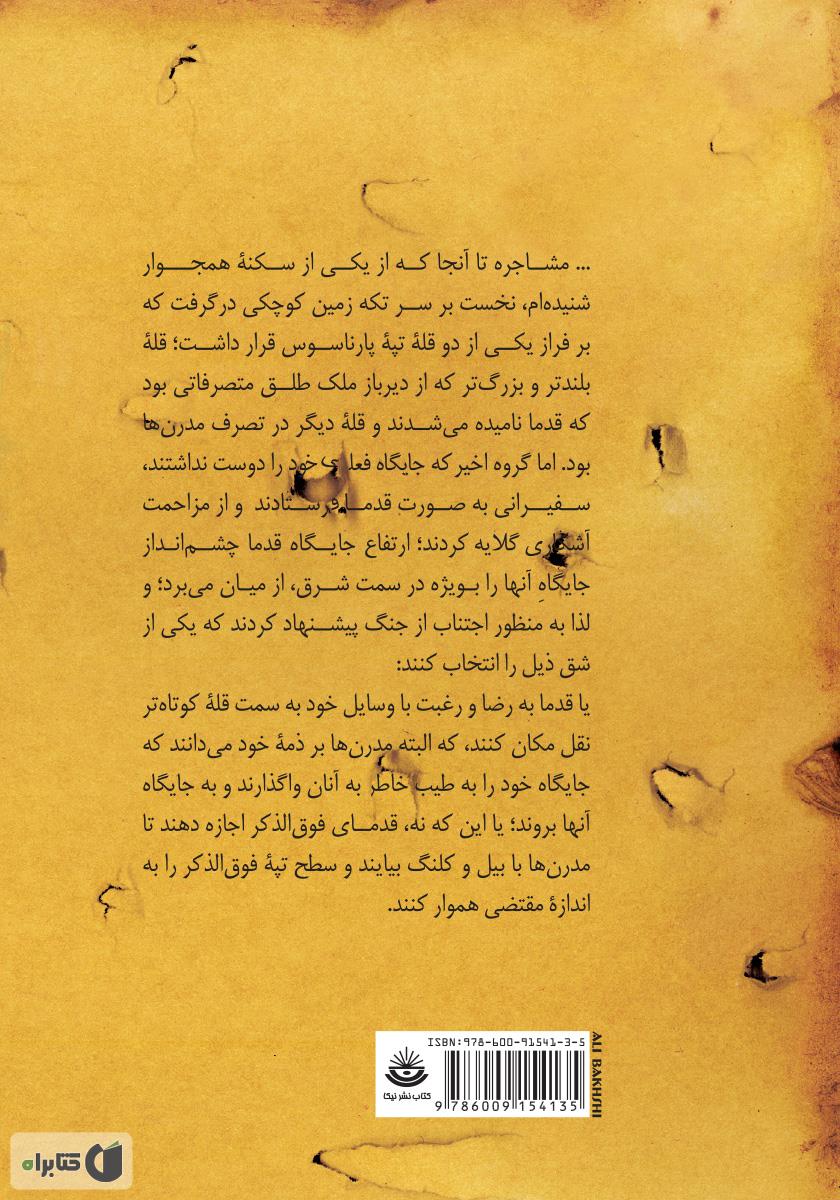 ... مشاجره تا آنجا که از یکی از سکنهٔ همجوار
شنیده‌ام، نخست بر سر تکه زمین کوچکی درگرفت که
بر فراز یکی از دو قلهٔ تپهٔ پارناسوس قرار داشت؛ قلهٔ
بلندتر و بزرگ‌تر که از دیرباز ملک طلق متصرفاتی بود
که قدما نامیده می‌شدند و قلهٔ دیگر در تصرف مدرن‌ها
بود. اما گروه اخیر که جایگاه فعلی خود را دوست نداشتند،
سفیرانی به صورت قدما فرستادند و از مزاحمت
آشکاری گلایه کردند؛ ارتفاع جایگاه قدما چشم‌انداز
جایگاهِ آنها را بویژه در سمت شرق، از میان می‌برد؛ و
لذا به منظور اجتناب از جنگ پیشنهاد کردند که یکی از
شق ذیل را انتخاب کنند:
یا قدما به رضا و رغبت با وسایل خود به سمت قلهٔ کوتاه‌تر
نقل مکان کنند، که البته مدرن‌ها بر ذمهٔ خود می‌دانند که
جایگاه خود را به طیب خاطر به آنان واگذارند و به جایگاه
آنها بروند؛ یا این که نه، قدمای فوق‌الذکر اجازه دهند تا
مدرن‌ها با بیل و کلنگ بیایند و سطح تپهٔ فوق‌الذکر را به
اندازهٔ مقتضی هموار کنند.
ISBN:978-600-91541-3-5
9 786009 154135
کتاب نشر نیکا
ALI BAKHSHI
کتابراه